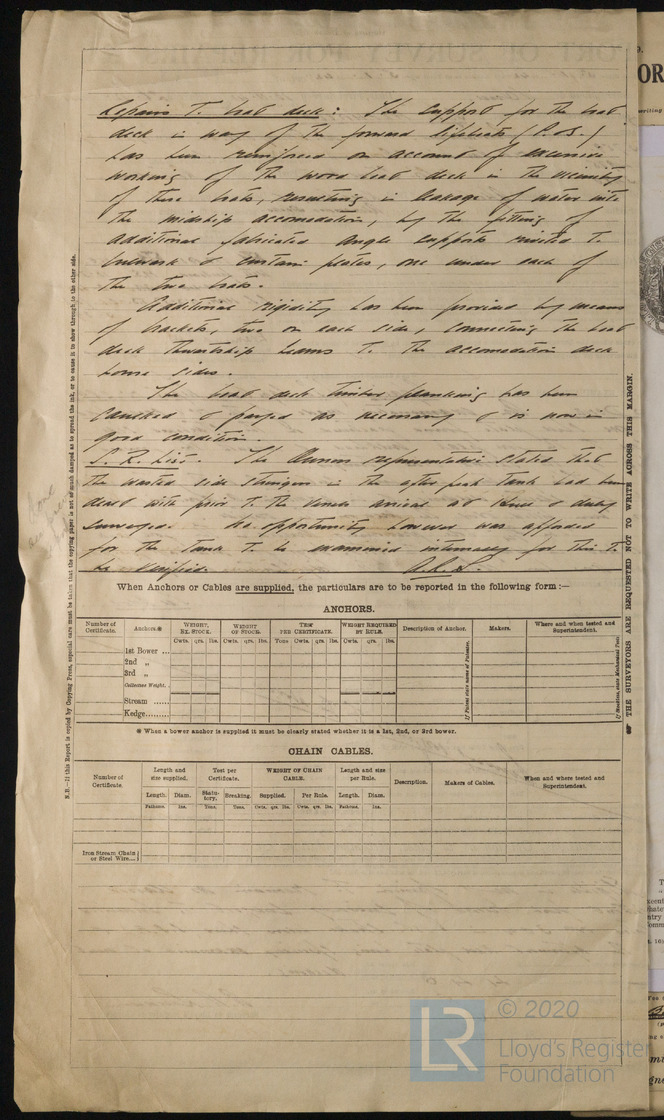 Repairs T. boat deck: The support for the boat
deck in way of the forward lifeboats (P. & S.)
has been reinforced on account of excessive
working of the wood boat deck in the vicinity
of these boats, resulting in leakage of water into
the midship accomodation, by the fitting of
additional fabricated angle supports riveted T.
bulwark & curtain plates, one under each of
the two boats.
Additional rigidity has been provided by means
of brackets, two on each side, connecting the boat
deck thwartship beams T. the accomodation deck
house sides.
The boat deck timber planking has been
caulked & payed as necessary & is now in
good condition.
S. R. List. The Owners representative stated that
the wasted side stringers in the after peak Tank had been
dealt with prior T. the vessels arrival at & duly
surveyed. No opportunity however was afforded
for the Tank T. be examined internally for this T.
be verified.
When Anchors or Cables are supplied, the particulars are to be reported in the following form:—
ANCHORS.
Number of Certificate. Anchors.* WEIGHT, EX. STOCK. WEIGHT OF STOCK. TEST PER CERTIFICATE. WEIGHT REQUIRED BY RULE. Description of Anchor. Makers. Where and when tested and Superintendent.
Cwts. qrs. lbs. Cwts. qrs. lbs. Tons Cwts. qrs. lbs. Cwts. qrs. lbs.
1st Bower ...
2nd „
3rd „
Collective Weight.
Stream ......
Kedge.........
If Patent state name of Patentee.
* When a bower anchor is supplied it must be clearly stated whether it is a 1st, 2nd, or 3rd bower.
CHAIN CABLES.
Number of Certificate. Length and size supplied. Test per Certificate. WEIGHT OF CHAIN CABLE. Length and size per Rule. Description. Makers of Cables. When and where tested and Superintendent.
Length. Diam. Statutory. Breaking. Supplied. Per Rule. Length. Diam.
Fathoms. Ins. Tons. Tons. Cwts. qrs. lbs. Cwts. qrs. lbs. Fathoms. Ins.
Iron Stream Chain or Steel Wire...
N.B.—If this Report is copied by Copying Press, especial care must be taken that the copying paper is not so much damped as to spread the ink, or to cause it to show through to the other side.
THE SURVEYORS ARE REQUESTED NOT TO WRITE ACROSS THIS MARGIN.
LR © 2020
Lloyd's Register
Foundation